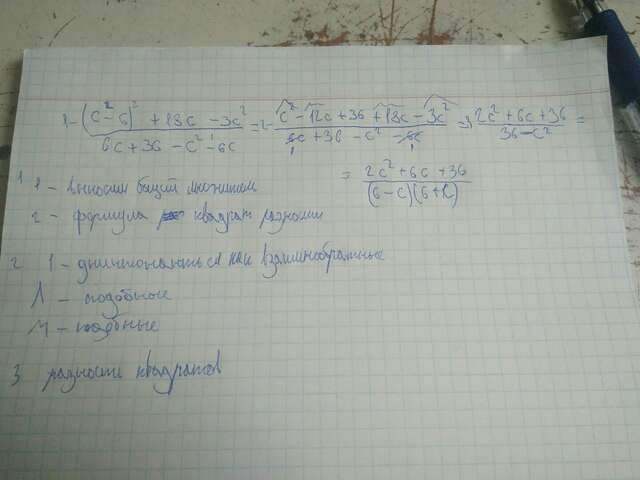 1 - (c - 6)² + 18c - 3c² / 6c + 36 - c² - 6c = 2 - c² - 12c + 36 + 18c - 3c² / 6c + 36 - c² - 6c = 3 2c² + 6c + 36 / 36 - c² =
= 2c² + 6c + 36 / (6 - c)(6 + c)
1 1 - выносим общий множитель
2 - формула квадрат разности
2 1 - как взаимнообратные
Λ - подобные
M - подобные
3 разность квадратов